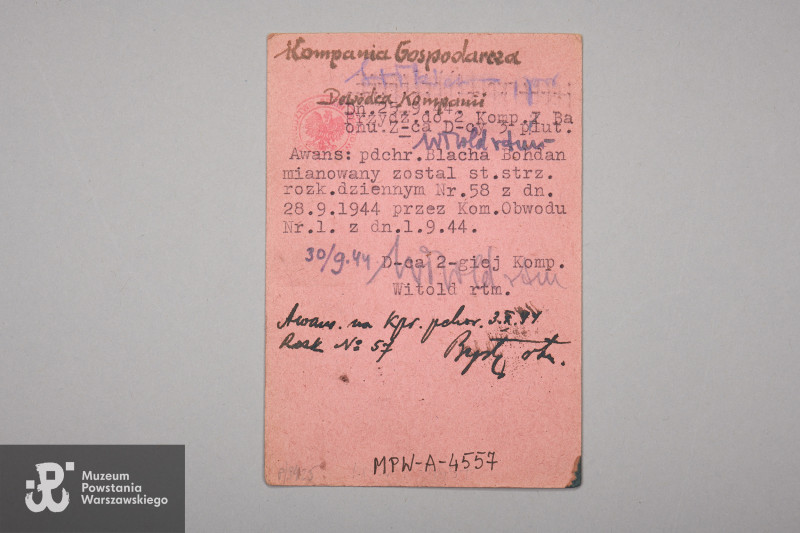 Kompania Gospodarcza
Dowódca Kompanii
Dn.25.9.44.
Przydz.do 2 Komp.I Ba
onu.Z-ca D-cy 3 plut.
Witold rtm
Awans: pdchr.Blacha Bohdan
mianowany zostal st.strz.
rozk.dziennym Nr.58 z dn.
28.9.1944 przez Kom.Obwodu
Nr.1. z dn.1.9.44.
30/9.44 Witold rtm
D-ca 2-giej Komp.
Witold rtm.
Awans. na kpr. pchor. 3.X.44
Rozk No 57
rtm.
MPW-A-4557
Muzeum
Powstania
Warszawskiego